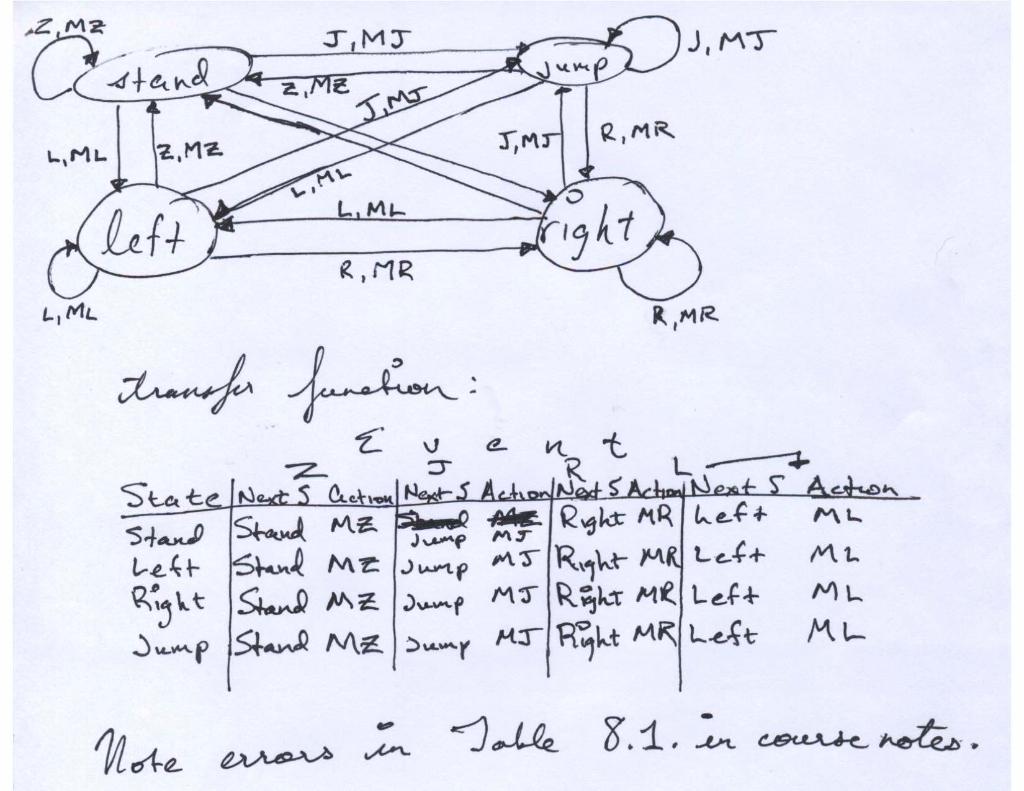 Z, MZ
J, MJ
J, MJ
stand
jump
Z, MZ
J, MJ
L, ML
Z, MZ
J, MJ
R, MR
L, ML
L, ML
left
right
R, MR
L, ML
R, MR
transfer function:
Event
Z J R L
State Next S Action Next S Action Next S Action Next S Action
Stand Stand MZ Jump MJ Right MR Left ML
Left Stand MZ Jump MJ Right MR Left ML
Right Stand MZ Jump MJ Right MR Left ML
Jump Stand MZ Jump MJ Right MR Left ML
Note errors in Table 8.1. in course notes.